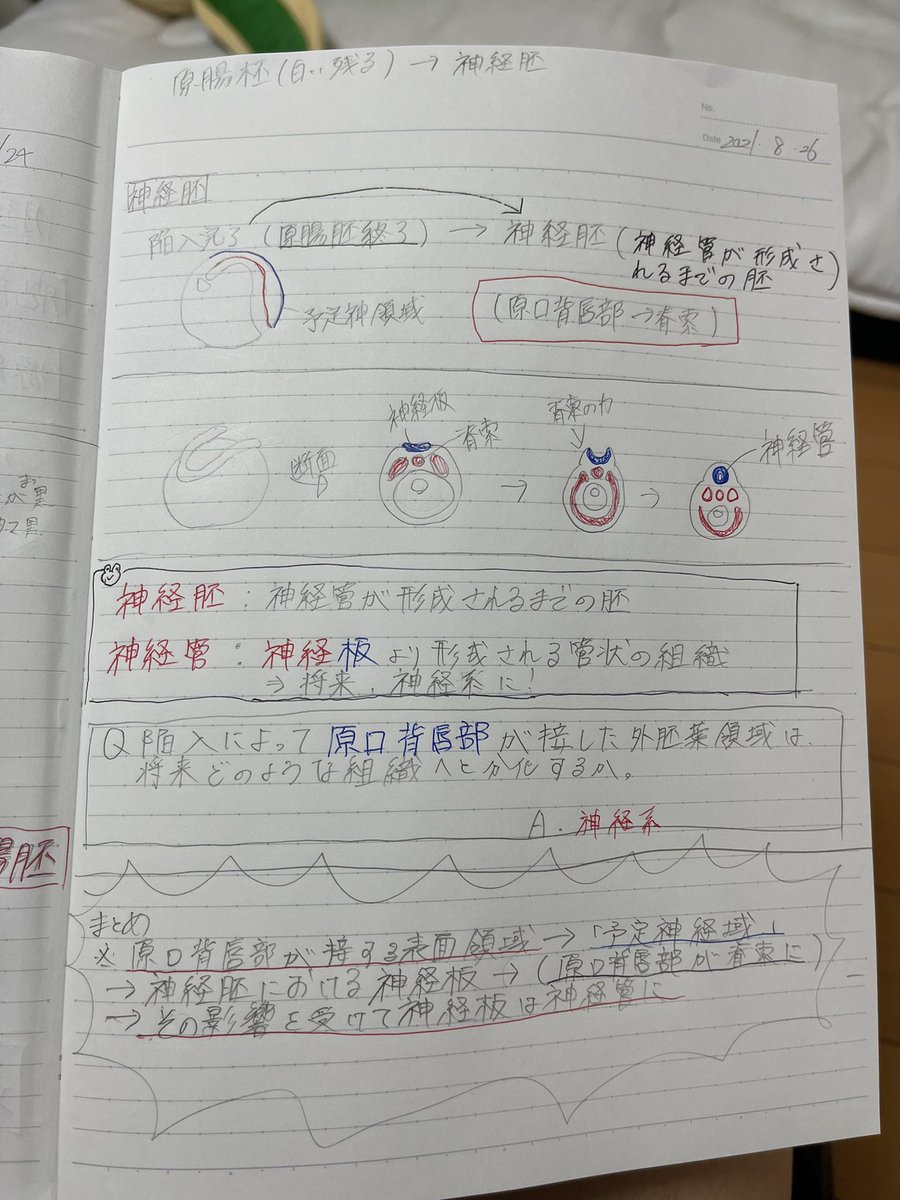 原腸杯(白い残る)→神経胚
No.
Date 2021・8・26
/24
神経胚
陥入完了(原腸胚終了)→神経胚(神経管が形成さ
れるまでの胚)
予定神領域
(原口背唇部→脊索)
神経板
脊索
脊索の力
神経管
断面
神経胚：神経管が形成されるまでの胚
神経管：神経板より形成される管状の組織
⇒将来、神経系に!
Q 陥入によって原口背唇部が接した外胚葉領域は
将来どのような組織へと分化するか。
A. 神経系
腸胚
まとめ
※原口背唇部が接する表面領域→「予定神経域」
→神経胚における神経板→(原口背唇部が脊索に)
→その影響を受けて神経板は神経管に